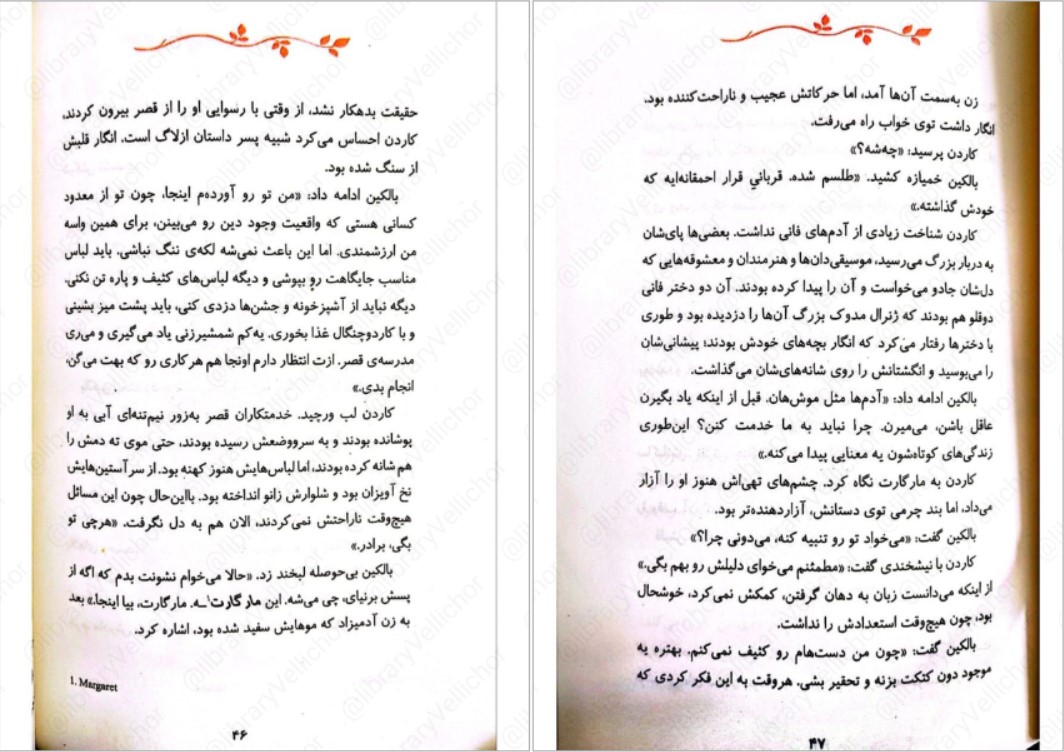 حقیقت بدهکار نشد، از وقتی با رسوایی او را از قصر بیرون کردند،
کاردن احساس می‌کرد شبیه پسر داستان ازلاگ است. انگار قلبش
از سنگ شده بود.
بالکین ادامه داد: «من تو رو آورده‌م اینجا، چون تو از معدود
کسانی هستی که واقعیت وجود دین رو می‌بینن، برای همین واسه
من ارزشمندی. اما این باعث نمی‌شه لکه‌ی ننگ نباشی. باید لباس
مناسب جایگاهت رو بپوشی و دیگه لباس‌های کثیف و پاره تن نکنی.
دیگه نباید از آشپزخونه و جشن‌ها دزدی کنی، باید پشت میز بشینی
و با کاردوچنگال غذا بخوری. یه‌کم شمشیرزنی یاد می‌گیری و می‌ری
مدرسه‌ی قصر. ازت انتظار دارم اونجا هم هرکاری رو که بهت می‌گن،
انجام بدی.»
کاردن لب ورچید. خدمتکاران قصر به‌زور نیم‌تنه‌ای آبی به او
پوشانده بودند و به سرووضعش رسیده بودند، حتی موی ته دمش را
هم شانه کرده بودند، اما لباس‌هایش هنوز کهنه بود. از سر آستین‌هایش
نخ آویزان بود و شلوارش زانو انداخته بود. بااین‌حال چون این مسائل
هیچ‌وقت ناراحتش نمی‌کردند، الان هم به دل نگرفت. «هرچی تو
بگی، برادر.»
بالکین بی‌حوصله لبخند زد. «حالا می‌خوام نشونت بدم که اگه از
پسش برنیای، چی می‌شه. این مارگارت¹ـه. مارگارت، بیا اینجا.» بعد
به زن آدمیزاد که موهایش سفید شده بود، اشاره کرد.
1. Margaret
۴۶
زن به‌سمت آن‌ها آمد، اما حرکاتش عجیب و ناراحت‌کننده بود.
انگار داشت توی خواب راه می‌رفت.
کاردن پرسید: «چه‌شه؟»
بالکین خمیازه کشید. «طلسم شده. قربانیِ قرار احمقانه‌ایه که
خودش گذاشته.»
کاردن شناخت زیادی از آدم‌های فانی نداشت. بعضی‌ها پای‌شان
به دربار بزرگ می‌رسید، موسیقی‌دان‌ها و هنرمندان و معشوقه‌هایی که
دل‌شان جادو می‌خواست و آن را پیدا کرده بودند. آن دو دختر فانی
دوقلو هم بودند که ژنرال مدوک بزرگ آن‌ها را دزدیده بود و طوری
با دخترها رفتار می‌کرد که انگار بچه‌های خودش بودند؛ پیشانی‌شان
را می‌بوسید و انگشتانش را روی شانه‌های‌شان می‌گذاشت.
بالکین ادامه داد: «آدم‌ها مثل موش‌هان. قبل از اینکه یاد بگیرن
عاقل باشن، می‌میرن. چرا نباید به ما خدمت کنن؟ این‌طوری
زندگی‌های کوتاه‌شون یه معنایی پیدا می‌کنه.»
کاردن به مارگارت نگاه کرد. چشم‌های تهی‌اش هنوز او را آزار
می‌داد، اما بند چرمی توی دستانش، آزاردهنده‌تر بود.
بالکین گفت: «می‌خواد تو رو تنبیه کنه، می‌دونی چرا؟»
کاردن با نیشخندی گفت: «مطمئنم می‌خوای دلیلش رو بهم بگی.»
از اینکه می‌دانست زبان به دهان گرفتن، کمکش نمی‌کرد، خوشحال
بود، چون هیچ‌وقت استعدادش را نداشت.
بالکین گفت: «چون من دست‌هام رو کثیف نمی‌کنم. بهتره یه
موجود دون کتکت بزنه و تحقیر بشی. هروقت به این فکر کردی که
۴۷
@libraryVellichor